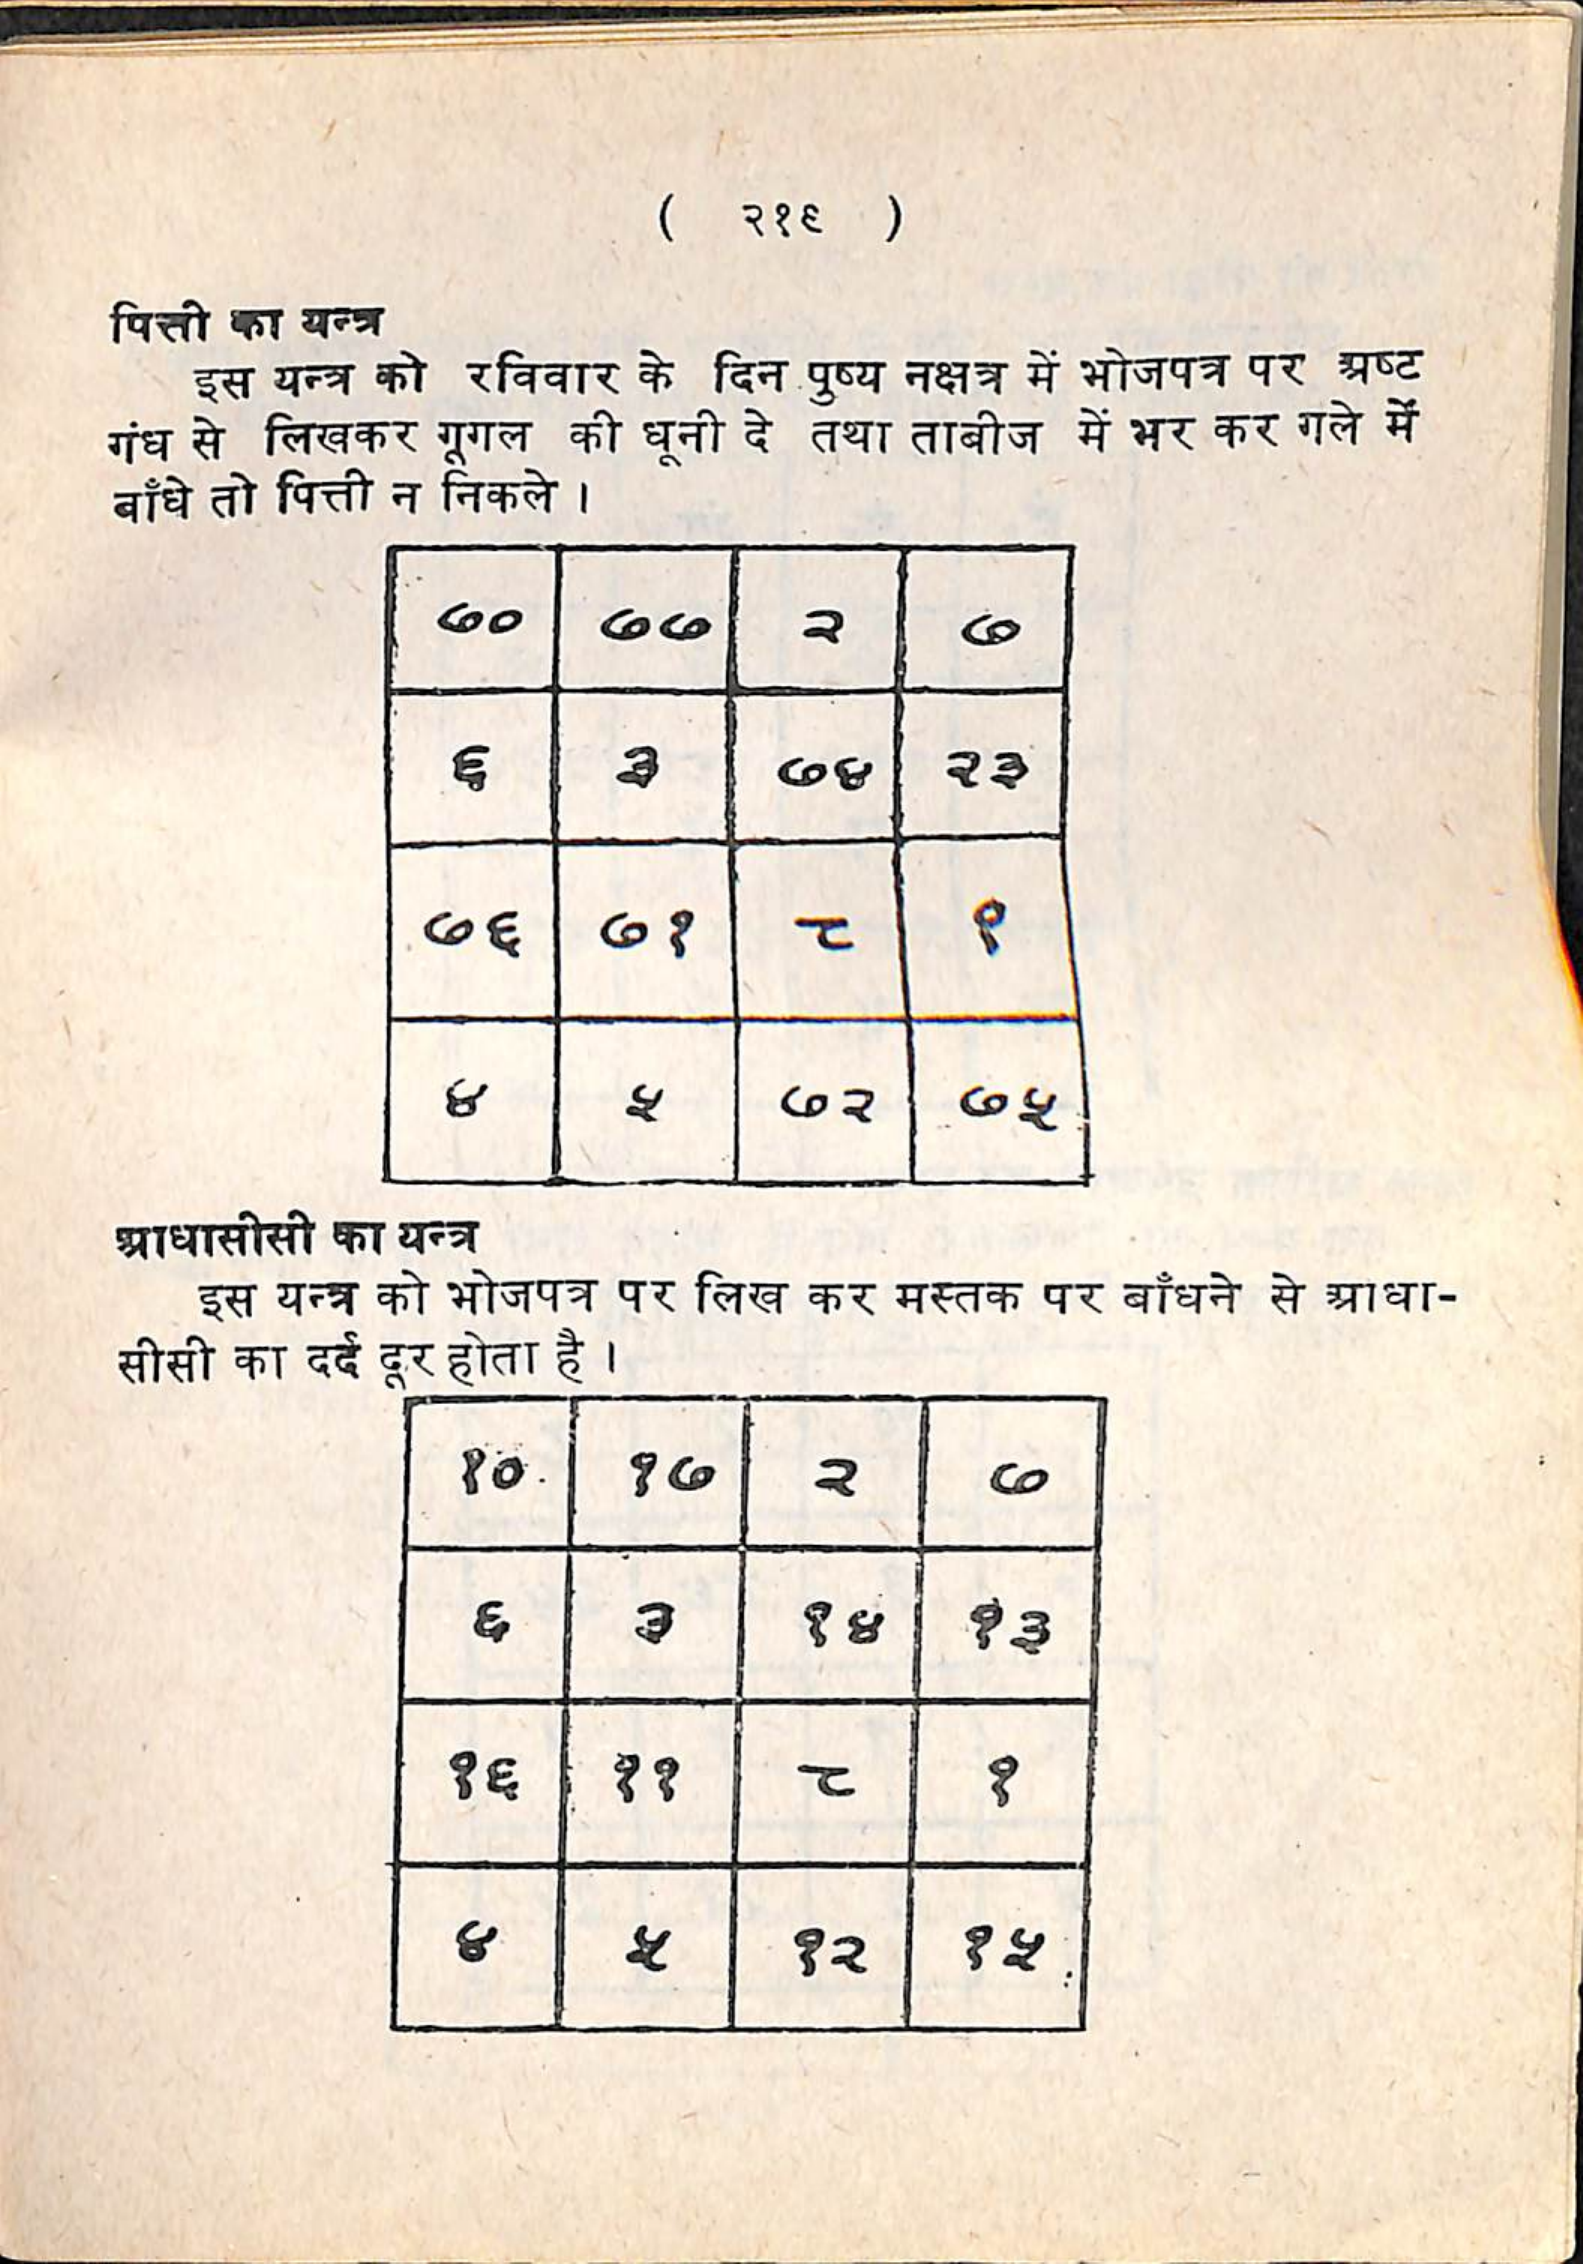 ( २१९ )
पित्ती का यन्त्र
इस यन्त्र को रविवार के दिन पुष्य नक्षत्र में भोजपत्र पर अष्ट
गंध से लिखकर गूगल की धूनी दे तथा ताबीज में भर कर गले में
बाँधे तो पित्ती न निकले ।
७० ७७ २ ७
६ ३ ७४ २३
७६ ७१ ८ १
४ ५ ७२ ७५
आधासीसी का यन्त्र
इस यन्त्र को भोजपत्र पर लिख कर मस्तक पर बाँधने से आधा-
सीसी का दर्द दूर होता है ।
१० १७ २ ७
६ ३ १४ १३
१६ ११ ८ १
४ ५ १२ १५